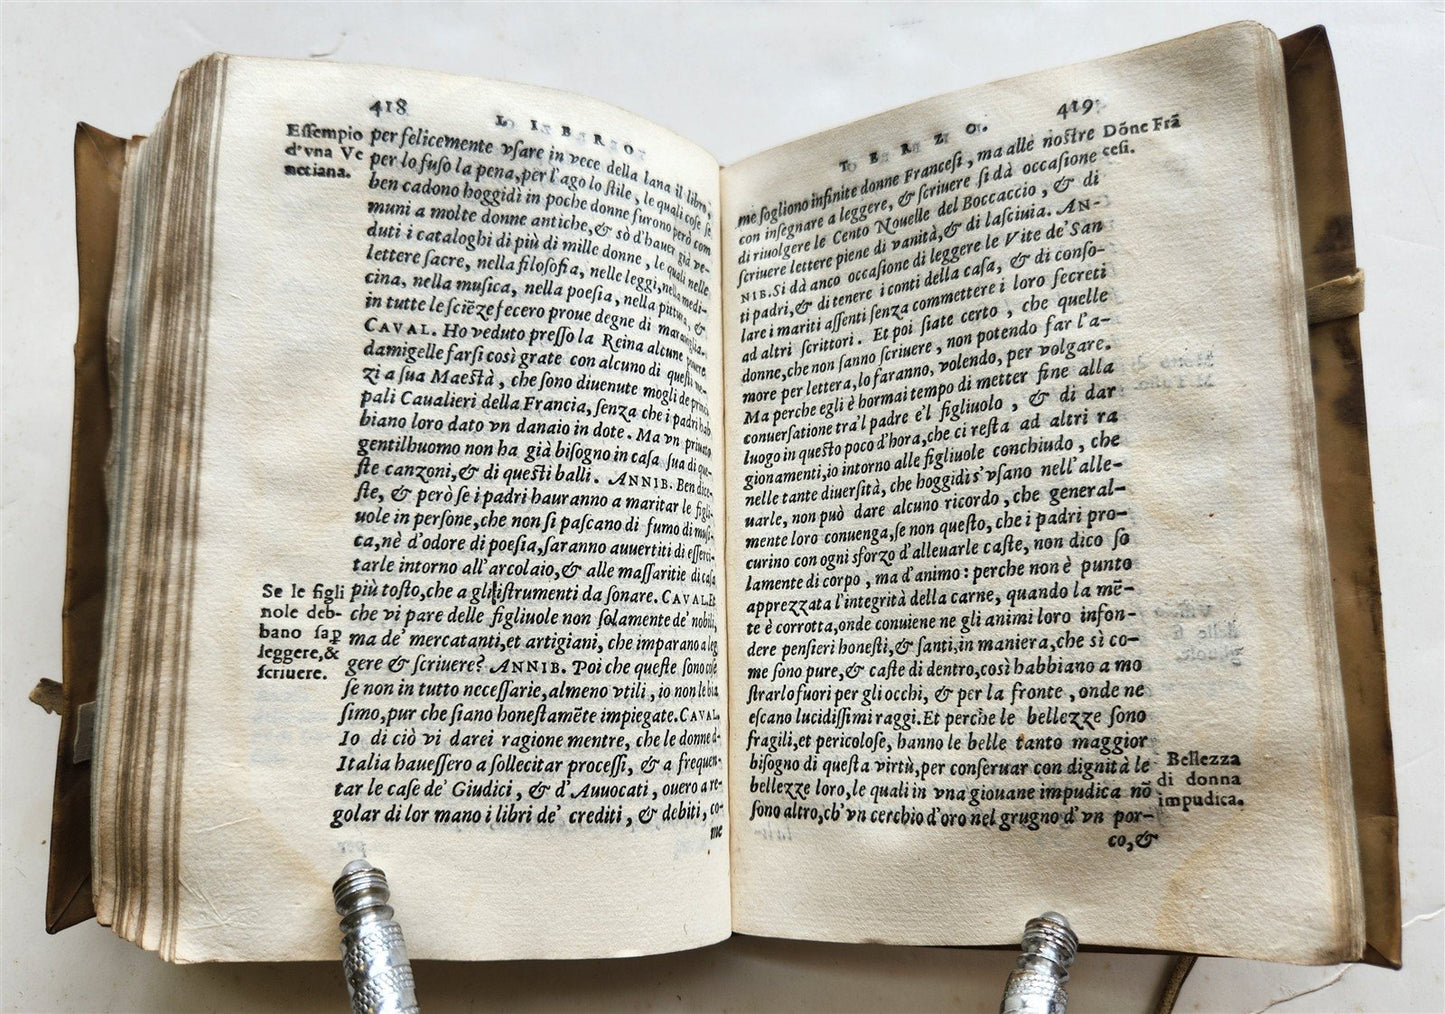 418
LIBRO
Essempio
d'vna Ve
netiana.
per felicemente vsare in vece della lana il libro,
per lo fuso la pena, per l'ago lo stile, le quali cose se
ben cadono hoggidì in poche donne furono però com
muni a molte donne antiche, & sò d'hauer già ve-
duti i cataloghi di più di mille donne, le quali nelle
lettere sacre, nella filosofia, nelle leggi, nella medi-
cina, nella musica, nella poesia, nella pittura, &
in tutte le sciēze fecero proue degne di marauiglia.
CAVAL. Ho veduto presso la Reina alcune pouere
damigelle farsi così grate con alcuno di questi me-
zi a sua Maestà, che sono diuenute mogli de princi
pali Caualieri della Francia, senza che i padri hab
biano loro dato vn danaio in dote. Ma vn priuato
gentilhuomo non ha già bisogno in casa sua di que-
ste canzoni, & di questi balli. ANNIB. Ben dice-
ste, & però se i padri hauranno a maritar le figli-
uole in persone, che non si pascano di fumo di musi-
ca, nè d'odore di poesia, saranno auuertiti di esserci-
tarle intorno all'arcolaio, & alle massaritie di casa
Se le figli
uole deb-
bano sap
leggere, &
scriuere.
più tosto, che a gli istrumenti da sonare. CAVAL. Et
che vi pare delle figliuole non solamente de' nobili,
ma de' mercatanti, et artigiani, che imparano a leg
gere & scriuere? ANNIB. Poi che queste sono cose
se non in tutto necessarie, almeno vtili, io non le bia
simo, pur che siano honestamēte impiegate. CAVAL.
Io di ciò vi darei ragione mentre, che le donne d'
Italia hauessero a sollecitar processi, & a frequen-
tar le case de' Giudici, & d'Auuocati, ouero a re-
golar di lor mano i libri de' crediti, & debiti, co-
me
419
TERZO.
Dōne Frā
cesi.
me sogliono infinite donne Francesi, ma alle nostre
con insegnare a leggere, & scriuere si dà occasione
di riuolgere le Cento Nouelle del Boccaccio, & di
scriuere lettere piene di vanità, & di lasciuia. AN-
NIB. Si dà anco occasione di leggere le Vite de' San
ti padri, & di tenere i conti della casa, & di conso-
lare i mariti assenti senza commettere i loro secreti
ad altri scrittori. Et poi siate certo, che quelle
donne, che non sanno scriuere, non potendo far l'a-
more per lettera, lo faranno, volendo, per volgare.
Ma perche egli è hormai tempo di metter fine alla
conuersatione tra'l padre e'l figliuolo, & di dar
luogo in questo poco d'hora, che ci resta ad altri ra
gionamenti, io intorno alle figliuole conchiudo, che
nelle tante diuersità, che hoggidi s'vsano nell'alle-
uarle, non può dare alcuno ricordo, che general-
mente loro conuenga, se non questo, che i padri pro-
curino con ogni sforzo d'alleuarle caste, non dico so
lamente di corpo, ma d'animo: perche non è punto
apprezzata l'integrità della carne, quando la mē-
te è corrotta, onde conuiene ne gli animi loro infon-
dere pensieri honesti, & santi, in maniera, che sì co-
me sono pure, & caste di dentro, così habbiano a mo
strarlo fuori per gli occhi, & per la fronte, onde ne
escano lucidissimi raggi. Et perche le bellezze sono
fragili, et pericolose, hanno le belle tanto maggior
bisogno di questa virtù, per conseruar con dignità le
bellezze loro, le quali in vna giouane impudica nō
sono altro, ch'vn cerchio d'oro nel grugno d'vn por-
Bellezza
di donna
impudica.
co, &